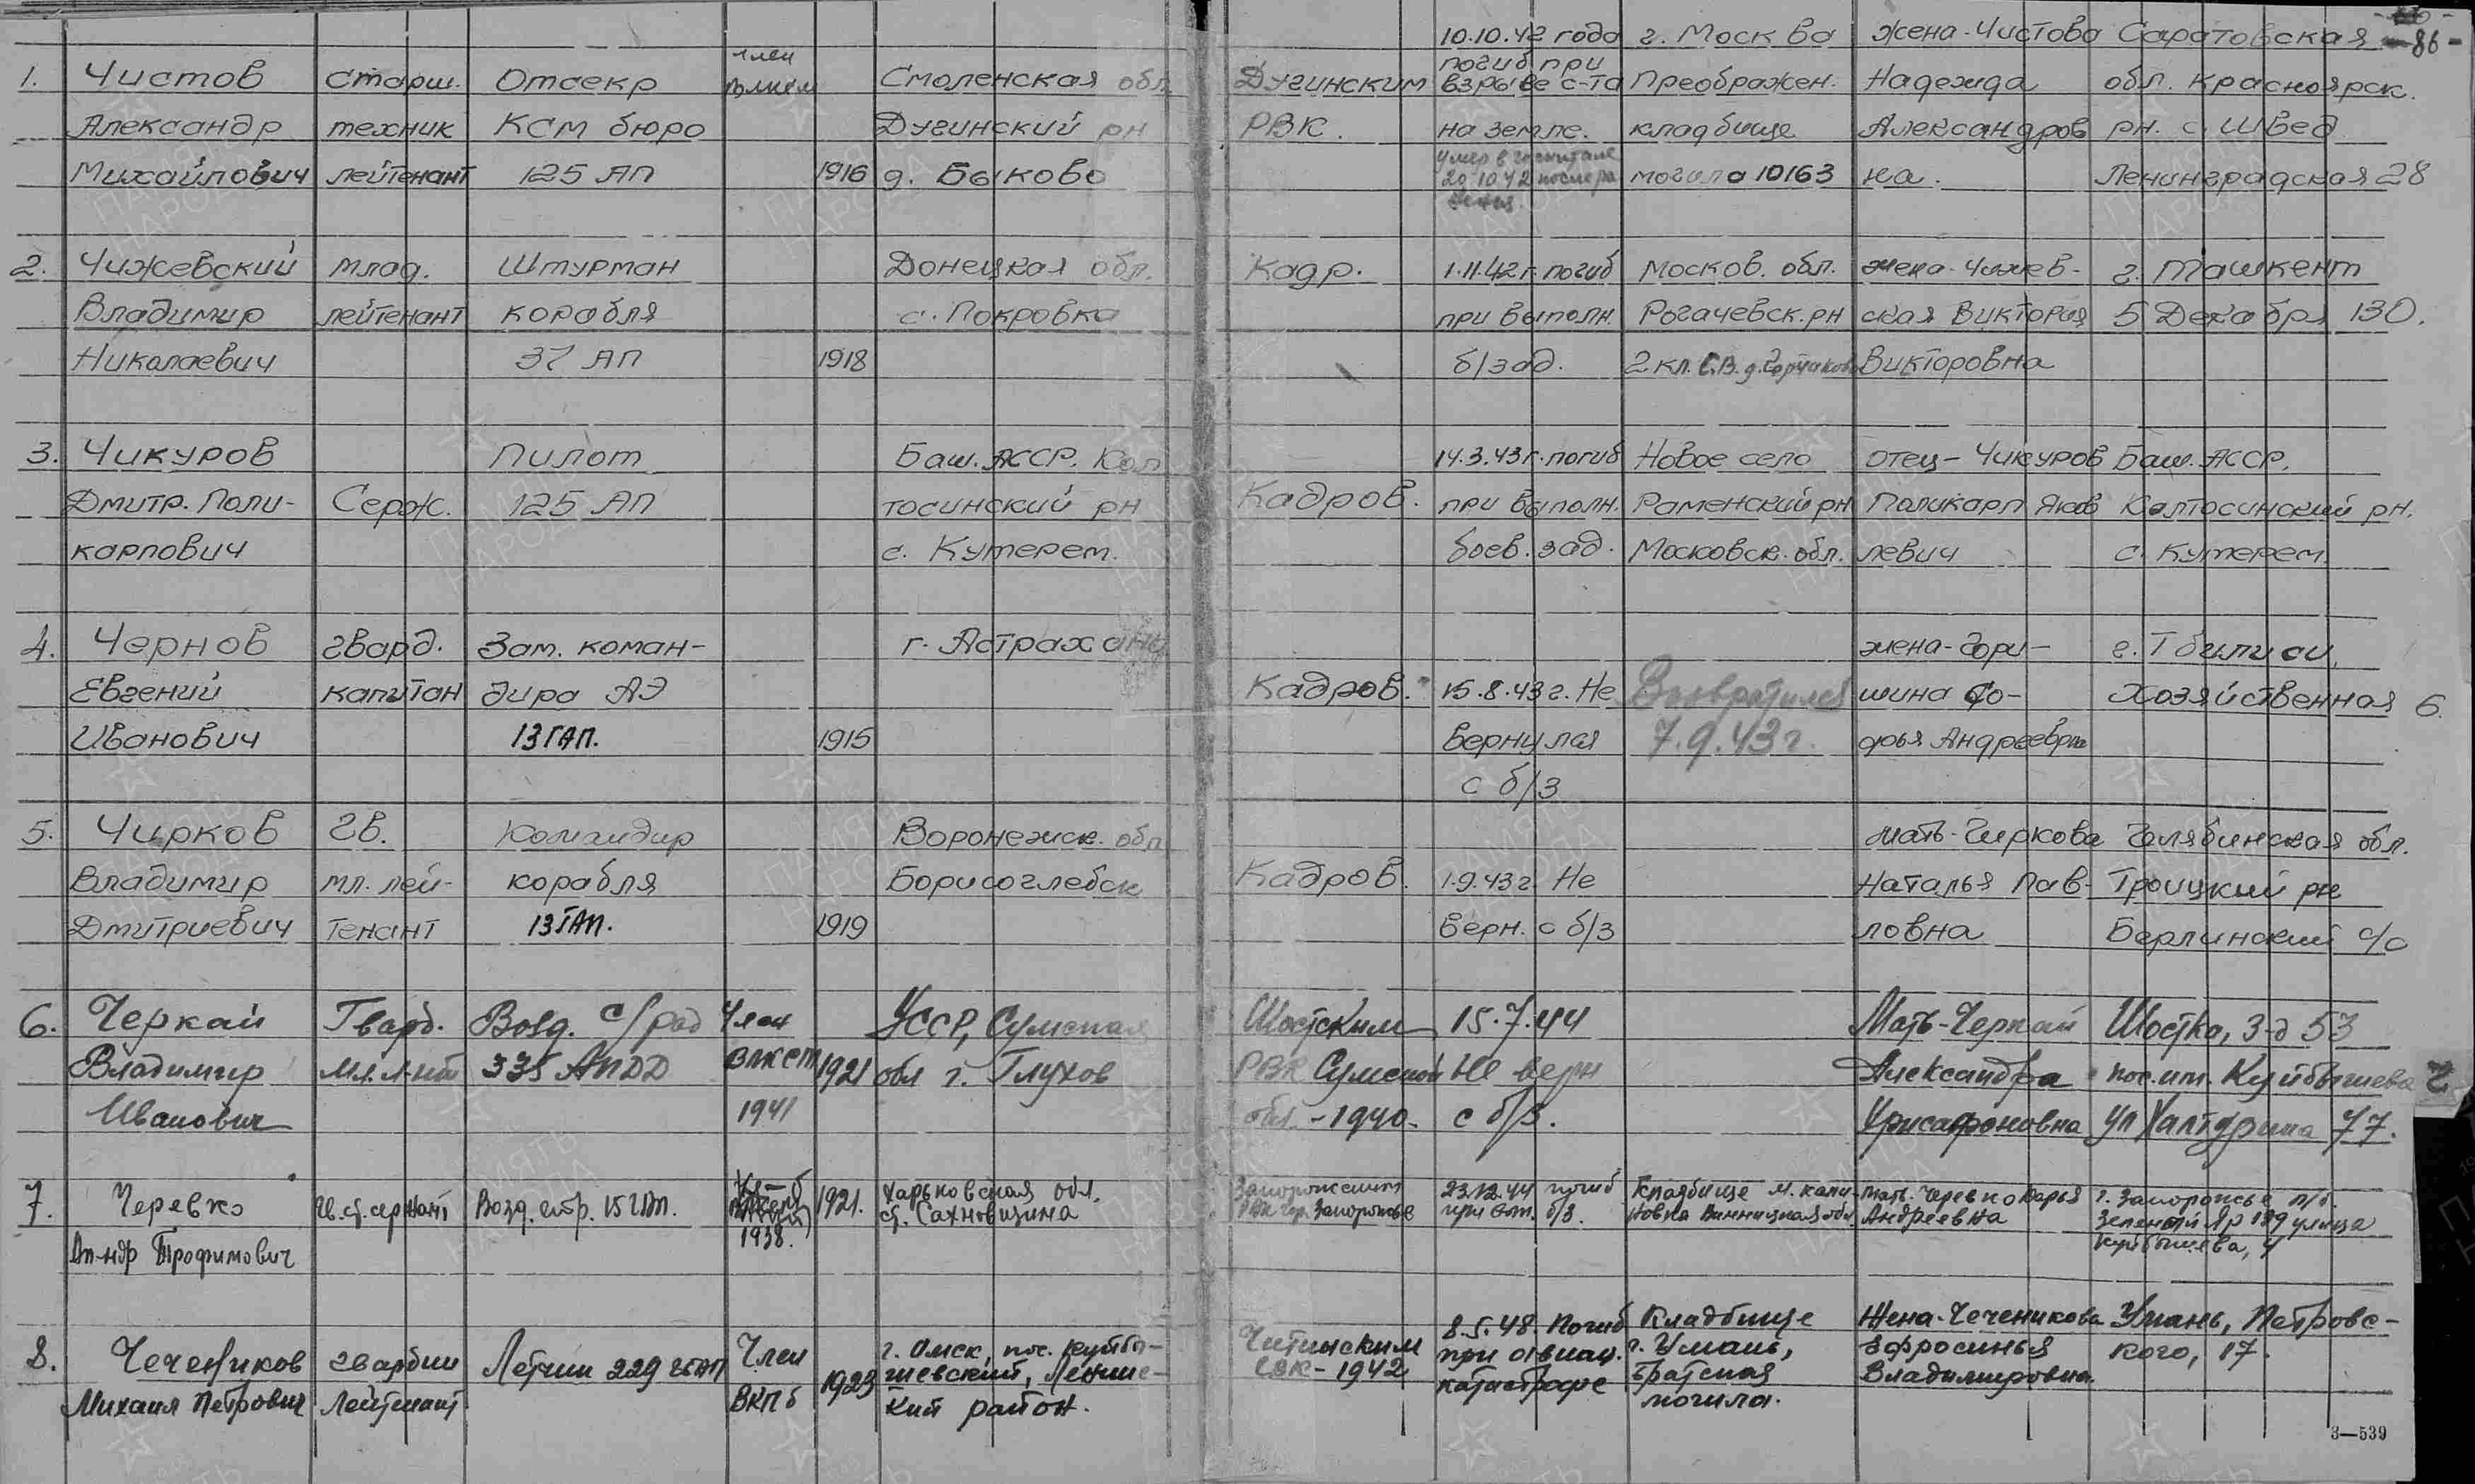 - 86 -
1. Чистов старш. Отсекр член Смоленская обл. 10.10.42 года г. Москва жена-Чистова Саратовская
Александр техник КСМ бюро влксм Дугинский рн Дугинским погиб при взрыве с-та Преображен. Надежда обл. Красноярск.
Михайлович лейтенант 125 АП 1916 д. Быково РВК. на земле. кладбище Александров рн. с. Швед
умер в госпитале
20.10.42 после ра могила 10163 на. Ленинградская 28
2. Чижевский млад. Штурман Донецкая обл. Кадр. 1.11.42 г. погиб Москов. обл. жена-Чижев- г. Ташкент
Владимир лейтенант корабля с. Покровка при выполн. Рогачевск. рн ская Виктория 5 Декабря 130.
Николаевич 37 АП 1918 б/зад. 2 кл. С.В. д. Горчаково Викторовна
3. Чикуров Пилот Баш. АССР. Кал 14.3.43 г. погиб Новое село отец-Чикуров Баш. АССР.
Дмитр. Поли- Серж. 125 АП тосинский рн Кадров. при выполн. Раменский рн Поликарп Яков Калтосинский рн.
карпович с. Кутерем. боев. зад. Московск. обл. левич с. Кутерем.
4. Чернов гвард. Зам. коман- г. Астрахань жена-Гори- г. Тбилиси.
Евгений капитан дира АЭ Кадров. 15.8.43 г. Не Возвратился шина Со- Хозяйственная 6.
Иванович 13 ГАП. 1915 вернулся 7.9.43 г. фья Андреевна
с б/з
5. Чирков гв. Командир Воронежск. обл. мать-Чиркова Челябинская обл.
Владимир мл. лей- корабля Борисоглебск Кадров. 1.9.43 г. Не Наталья Пав- Троицкий рн
Дмитриевич тенант 13 ГАП. 1919 верн. с б/з ловна Берлинский с/с
6. Черкай Гвард. Возд. с/рад Член УССР, Сумская Шостским 15.7.44 Мать-Черкай Шостка, з-д 53
Владимир мл. л-нт 335 АПДД ВЛКСМ 1921 обл г. Глухов РВК Сумской не верн Александра пос. им. Куйбышева
Иванович 1941 обл.-1940. с б/з. Хрисафоновна ул Халтурина 77.
7. Черевко Гв. ст. сержант Возд. стр. 15 ГАП. 1921. Харьковская обл. Запорожским 23.12.44 погиб Кладбище м. кали- Мать-Черевко Дарья г. Запорожье п/о.
1938. ст. Сахновщина РВК гор. Запорожье при вып. б/з. новка Винницкая обл Андреевна Зеленый Яр 189 улица
Ал-ндр Трофимович Куйбышева, 4
8. Чечеников гвардии Летчик 229 гвап Член г. Омск, пос. куйбы- Читинским 8.5.48. Погиб Кладбище Жена-Чеченикова Умань, Петровс-
ВКПб 1923 шевский, Ленинс- ГВК-1942 при авиац. г. Умань, Ефросинья кого, 17.
Михаил Петрович Лейтенант кий район. катастрофе братская Владимировна.
могила.
3—539